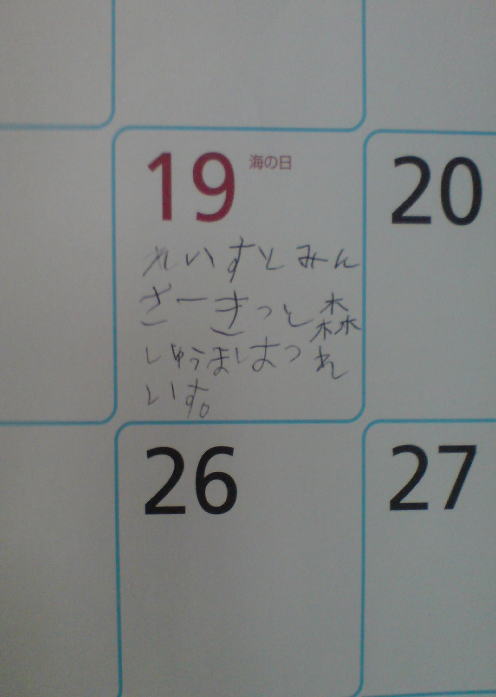 19 海の日
20
れいすとみん
さーきっと森
しゅうましはつれ
いす。
26
27